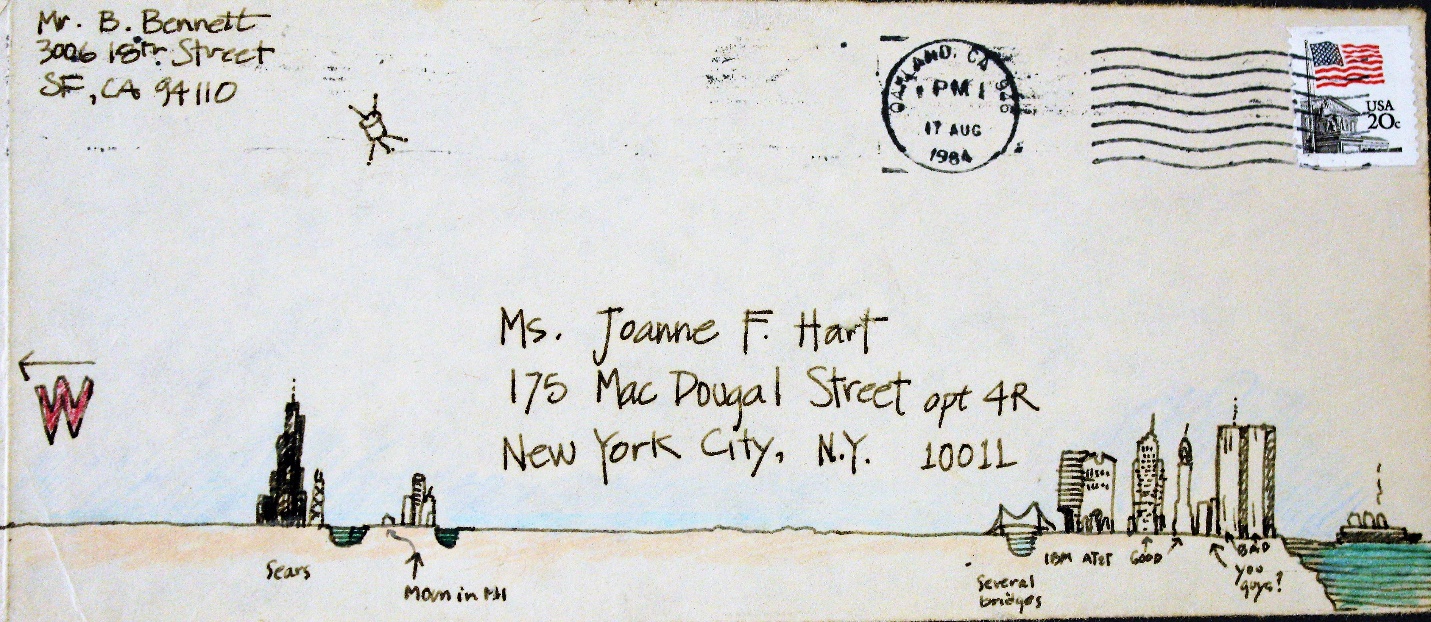 Mr. B. Bennett
3006 18th Street
SF, CA 94110
OAKLAND, CA
PM
17 AUG
1984
USA
20c
Ms. Joanne F. Hart
175 Mac Dougal Street apt 4R
New York City, N.Y. 10011
W
Sears
Mom in MI
Several
bridges
IBM AT&T GOOD
BAD
YOU
guys?